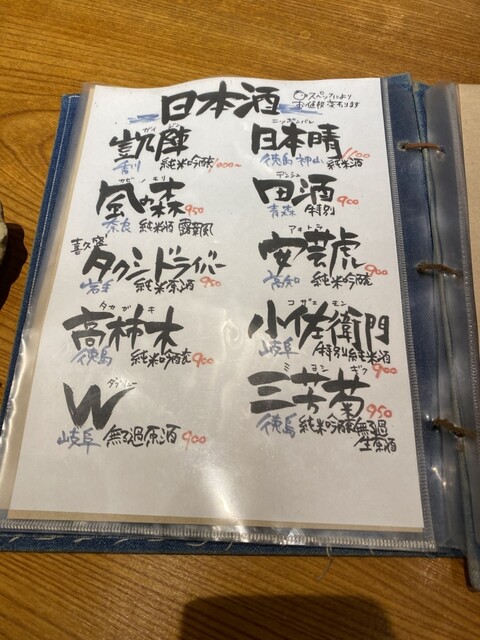 日本酒
○スペックにより
お値段変わります
ガイジン
凱陣
香川 純米吟醸 1000~
カゼノモリ
風の森 950
奈良 純米酒 露葉風
喜久盛
タクシードライバー
岩手 純米原酒 950
タカガキ
高柿木
徳島 純米吟醸 900
ダブリュー
W
岐阜 無ろ過原酒 900
ニッポンバレ
日本晴
徳島 神山 純米酒 1100
デンシュ
田酒 900
青森 特別
アキトラ
安芸虎
高知 純米吟醸 900
コザエモン
小左衛門
岐阜 特別純米酒 900
ミヨシギク
三芳菊 950
徳島 純米吟醸無ろ過
生原酒